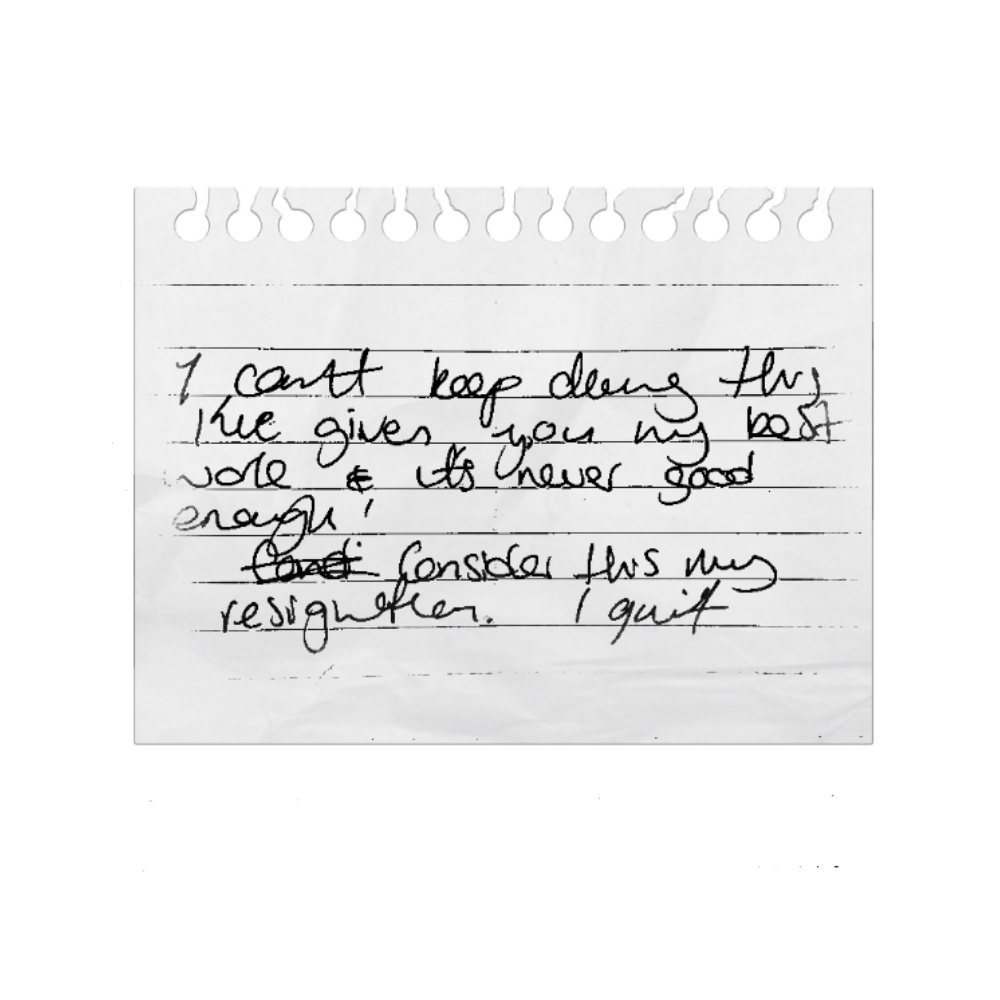 I can't keep doing this
I've given you my best
work & it's never good
enough!
Consider this my
resignation. I quit